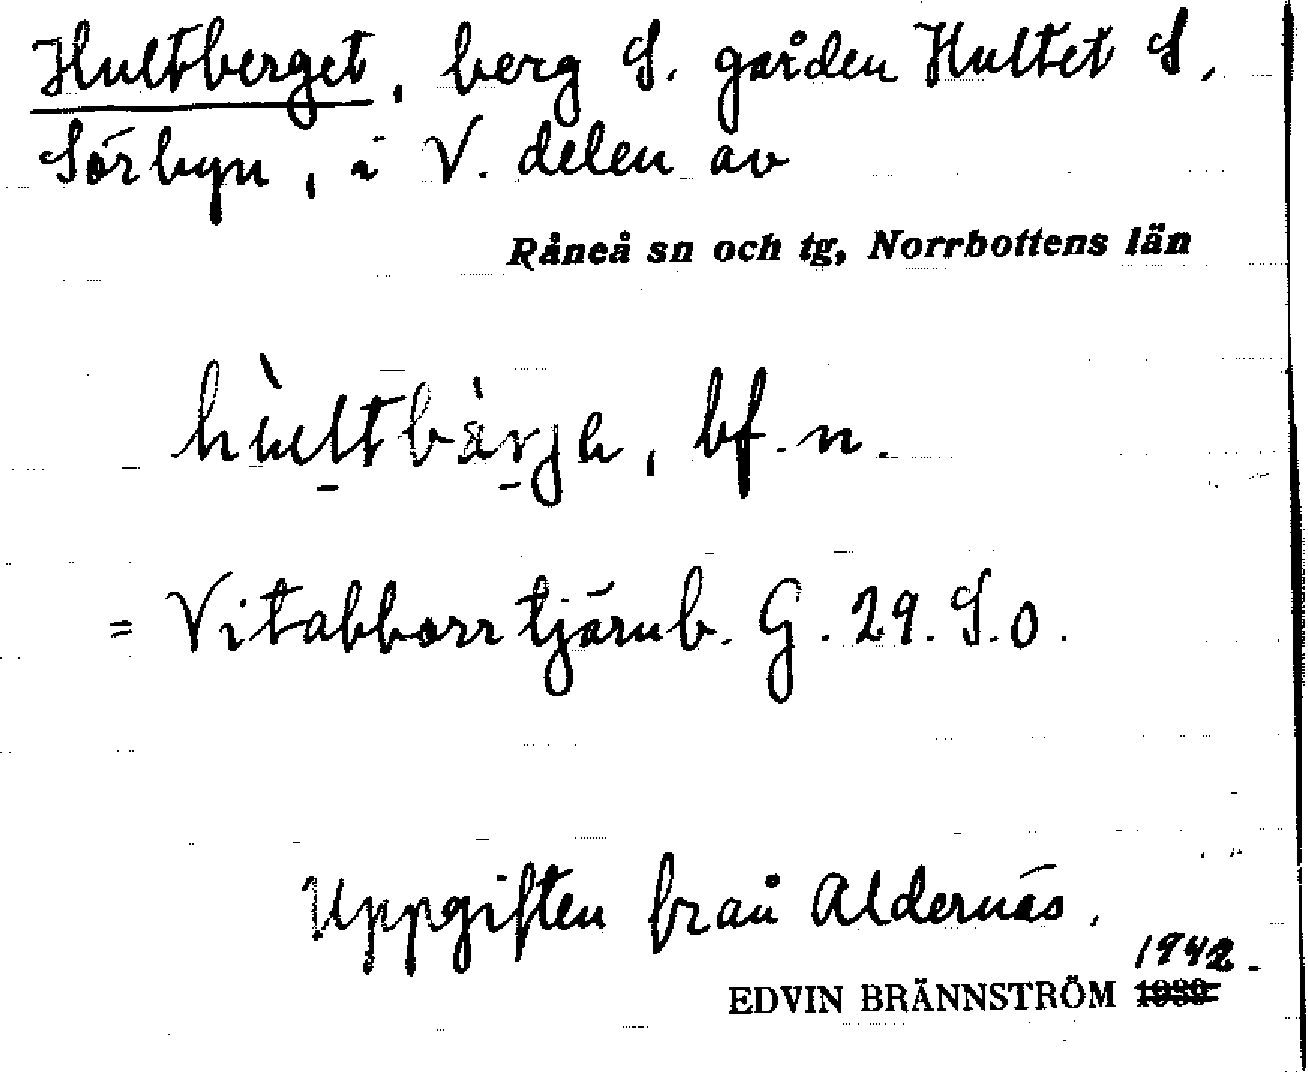 Hultberget, berg S. gården Hultet S,
Sörbyn, i V. delen av
Råneå sn och tg, Norrbottens län
hùltbàrje, bf. n.
= Vitabborrtjärnb. G. 29. S.o.
Uppgiften från Aldernäs.
1942.
EDVIN BRÄNNSTRÖM 1939